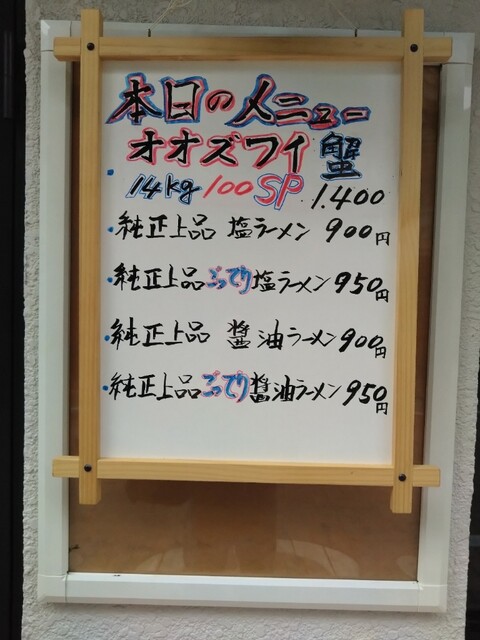 本日のメニュー
オオズワイ蟹
14kg 100 SP 1.400
・純正上品 塩ラーメン 900円
・純正上品こってり塩ラーメン 950円
・純正上品 醬油ラーメン 900円
・純正上品こってり醬油ラーメン 950円